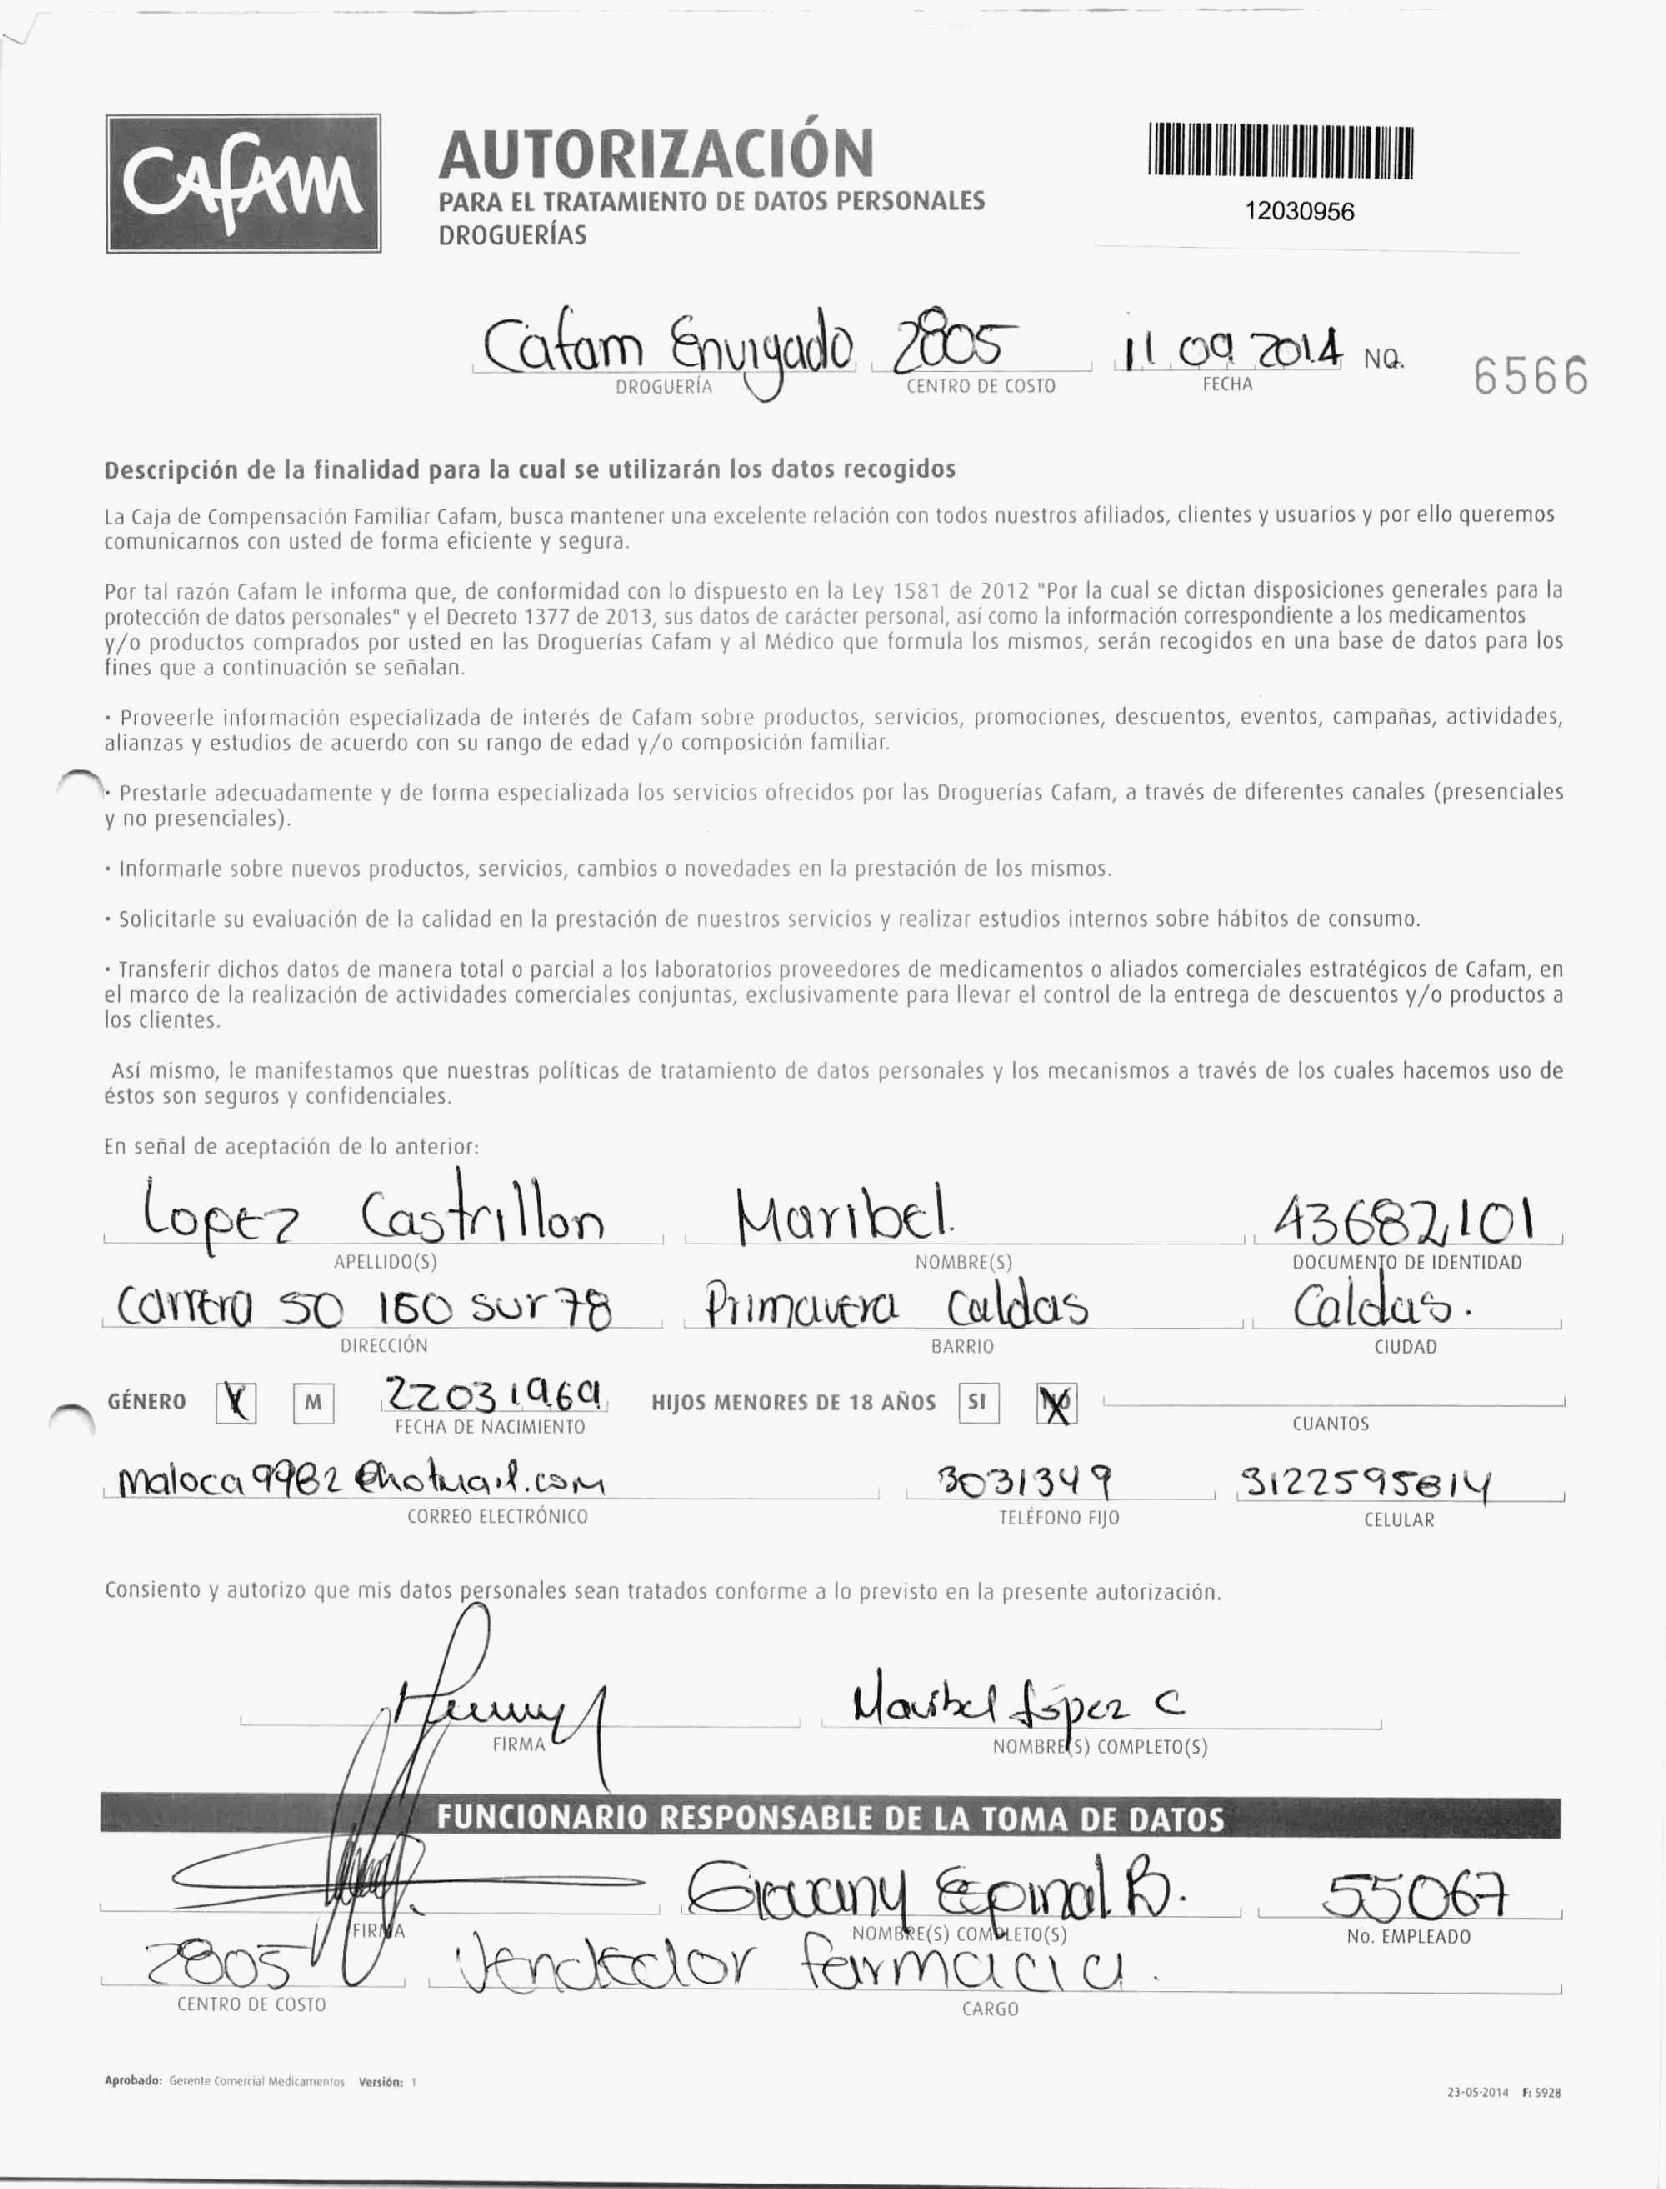 CAFAM
AUTORIZACIÓN
PARA EL TRATAMIENTO DE DATOS PERSONALES
DROGUERÍAS
12030956
Cafam Envigado 2805 11 09 2014 NO. 6566
DROGUERÍA CENTRO DE COSTO FECHA
Descripción de la finalidad para la cual se utilizarán los datos recogidos
La Caja de Compensación Familiar Cafam, busca mantener una excelente relación con todos nuestros afiliados, clientes y usuarios y por ello queremos
comunicarnos con usted de forma eficiente y segura.
Por tal razón Cafam le informa que, de conformidad con lo dispuesto en la Ley 1581 de 2012 "Por la cual se dictan disposiciones generales para la
protección de datos personales" y el Decreto 1377 de 2013, sus datos de carácter personal, así como la información correspondiente a los medicamentos
y/o productos comprados por usted en las Droguerías Cafam y al Médico que formula los mismos, serán recogidos en una base de datos para los
fines que a continuación se señalan.
· Proveerle información especializada de interés de Cafam sobre productos, servicios, promociones, descuentos, eventos, campañas, actividades,
alianzas y estudios de acuerdo con su rango de edad y/o composición familiar.
· Prestarle adecuadamente y de forma especializada los servicios ofrecidos por las Droguerías Cafam, a través de diferentes canales (presenciales
y no presenciales).
· Informarle sobre nuevos productos, servicios, cambios o novedades en la prestación de los mismos.
· Solicitarle su evaluación de la calidad en la prestación de nuestros servicios y realizar estudios internos sobre hábitos de consumo.
· Transferir dichos datos de manera total o parcial a los laboratorios proveedores de medicamentos o aliados comerciales estratégicos de Cafam, en
el marco de la realización de actividades comerciales conjuntas, exclusivamente para llevar el control de la entrega de descuentos y/o productos a
los clientes.
Así mismo, le manifestamos que nuestras políticas de tratamiento de datos personales y los mecanismos a través de los cuales hacemos uso de
éstos son seguros y confidenciales.
En señal de aceptación de lo anterior:
Lopez Castrillon Maribel. 43682101
APELLIDO(S) NOMBRE(S) DOCUMENTO DE IDENTIDAD
Carrera 50 160 sur 78 Primavera Caldas Caldas.
DIRECCIÓN BARRIO CIUDAD
GÉNERO M 22031969 HIJOS MENORES DE 18 AÑOS SI NO
FECHA DE NACIMIENTO CUANTOS
Maloca9982@hotmail.com 3031349 3122595814
CORREO ELECTRÓNICO TELÉFONO FIJO CELULAR
Consiento y autorizo que mis datos personales sean tratados conforme a lo previsto en la presente autorización.
Maribel López C
FIRMA NOMBRE(S) COMPLETO(S)
FUNCIONARIO RESPONSABLE DE LA TOMA DE DATOS
Giovany Espinal B. 55067
FIRMA NOMBRE(S) COMPLETO(S) No. EMPLEADO
2805 Vendedor farmacia.
CENTRO DE COSTO CARGO
Aprobado: Gerente Comercial Medicamentos Versión: 1
23-05-2014 F: 5928